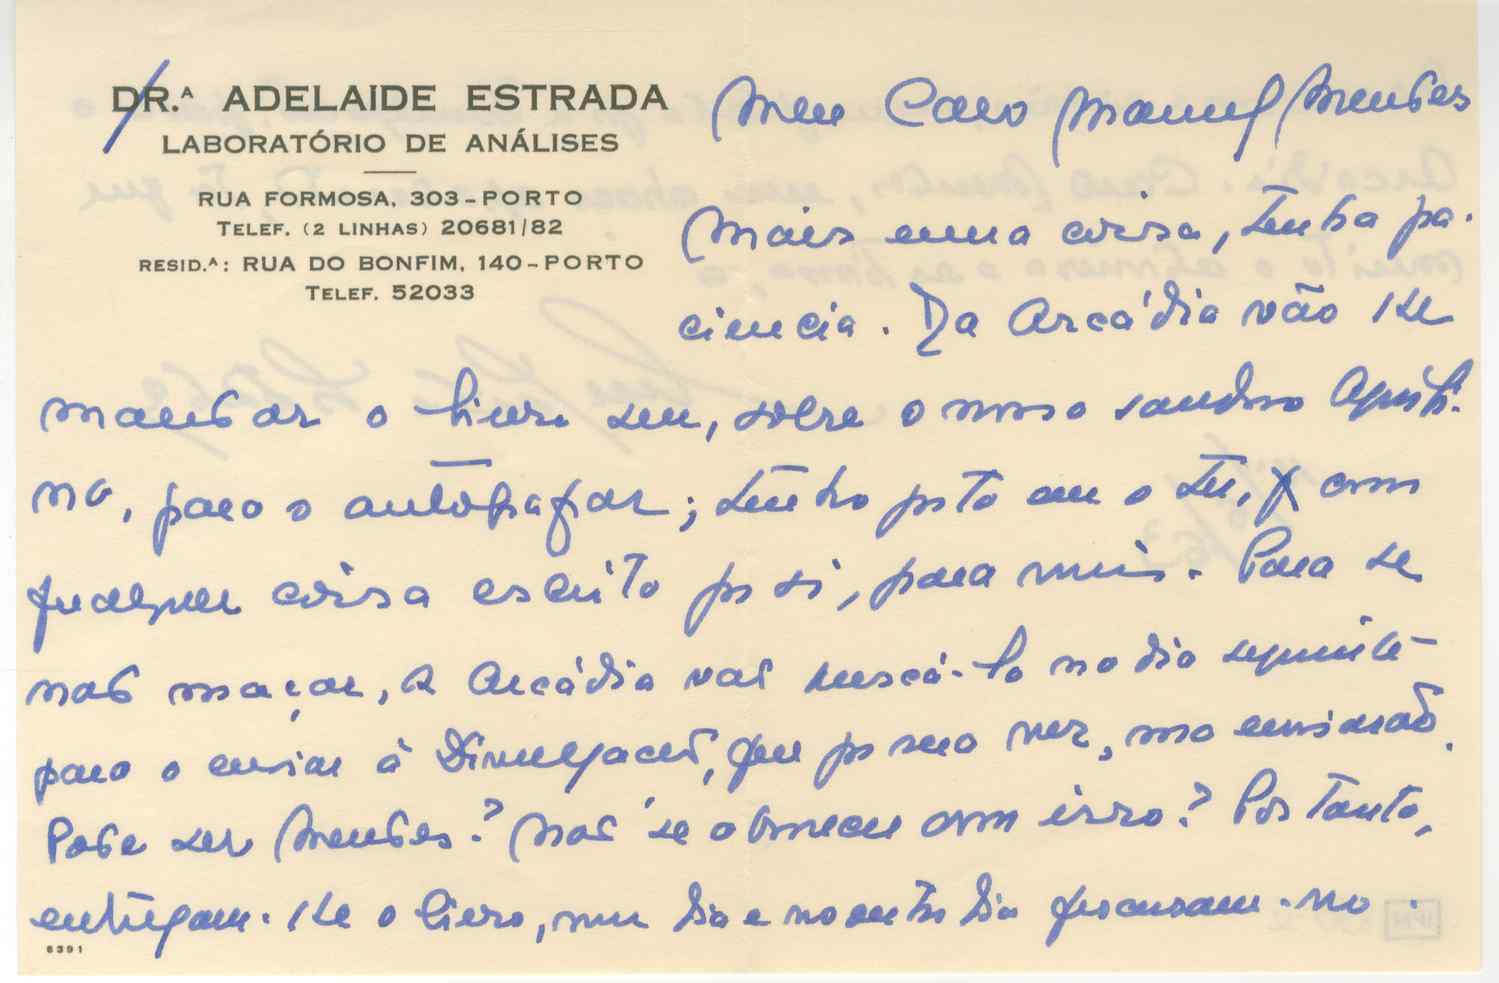 DR.ᴬ ADELAIDE ESTRADA
LABORATÓRIO DE ANÁLISES
RUA FORMOSA, 303-PORTO
TELEF. (2 LINHAS) 20681/82
RESID.ᴬ: RUA DO BONFIM, 140-PORTO
TELEF. 52033
Meu Caro Manuel Mendes
Mais uma coisa, tenha pa-
ciencia. Da Arcádia vão lhe
mandar o livro seu, sobre o nosso saudoso Aquili-
no, para o autografar; tenho gosto em o ter, com
qualquer coisa escrito por si, para mim. Para se
não maçar, a Arcádia vai buscá-lo no dia seguinte
para o enviar à Divulgação, que por sua vez, mo enviarão.
Pode ser Mendes? Não se aborrece com isso? Portanto,
entregam-lhe o livro, num dia e no outro dia procuram-no.
6391